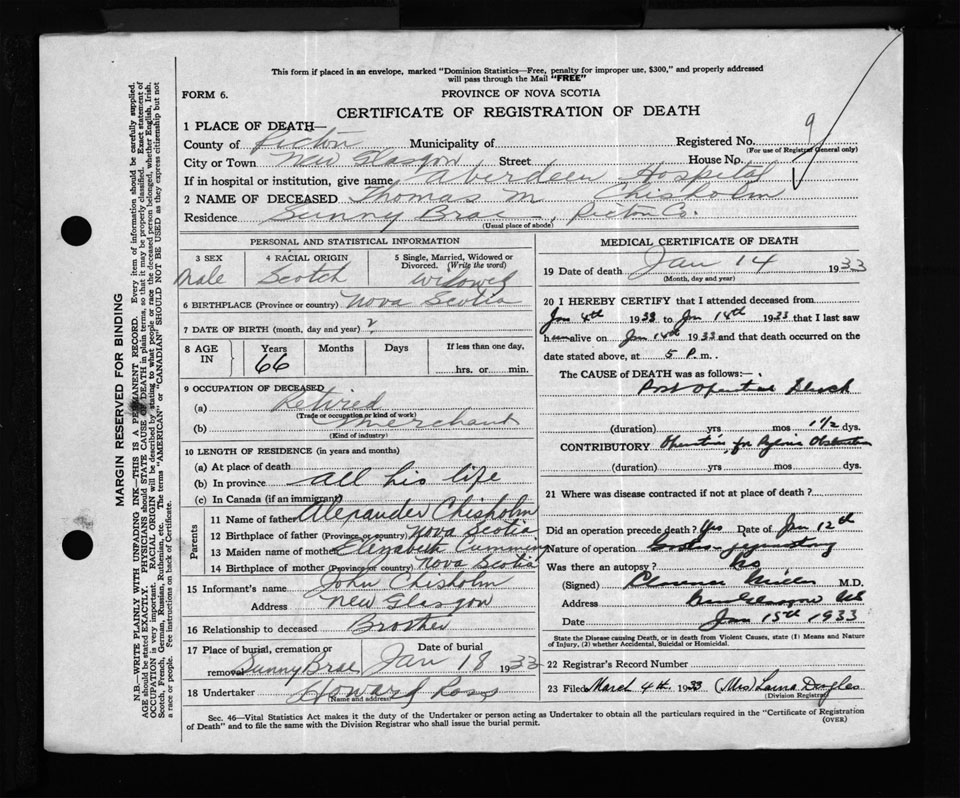 This form if placed in an envelope, marked "Dominion Statistics—Free, penalty for improper use, $300," and properly addressed
will pass through the Mail "FREE"
FORM 6. PROVINCE OF NOVA SCOTIA
CERTIFICATE OF REGISTRATION OF DEATH
1 PLACE OF DEATH—
County of Pictou Municipality of Registered No. 9
(For use of Registrar General only)
City or Town New Glasgow, Street House No.
If in hospital or institution, give name Aberdeen Hospital
2 NAME OF DECEASED Thomas M Chisholm
Residence Sunny Brae, Pictou Co.
(Usual place of abode)
PERSONAL AND STATISTICAL INFORMATION
3 SEX 4 RACIAL ORIGIN 5 Single, Married, Widowed or
Divorced. (Write the word)
Male Scotch Widowed
6 BIRTHPLACE (Province or country) Nova Scotia
7 DATE OF BIRTH (month, day and year) ?
8 AGE IN Years Months Days If less than one day,
66 hrs. or min.
9 OCCUPATION OF DECEASED
(a) Retired
(Trade or occupation or kind of work)
(b) Merchant
(Kind of industry)
10 LENGTH OF RESIDENCE (in years and months)
(a) At place of death
(b) In province all his life
(c) In Canada (if an immigrant)
Parents
11 Name of father Alexander Chisholm
12 Birthplace of father (Province or country) Nova Scotia
13 Maiden name of mother Elizabeth Cumming
14 Birthplace of mother (Province or country) Nova Scotia
15 Informant's name John Chisholm
Address New Glasgow
16 Relationship to deceased Brother
17 Place of burial, cremation or Date of burial
removal Sunny Brae Jan 18 1933
18 Undertaker Howard Ross
(Name and address)
MEDICAL CERTIFICATE OF DEATH
19 Date of death Jan 14 1933
(Month, day and year)
20 I HEREBY CERTIFY that I attended deceased from
Jan 4th 1933 to Jan 14th 1933 that I last saw
him alive on Jan 14th 1933 and that death occurred on the
date stated above, at 5 P.m.
The CAUSE OF DEATH was as follows:—
Post Operative Shock
(duration) yrs mos 1 1/2 dys.
CONTRIBUTORY Operation for Pyloric Obstruction
(duration) yrs mos dys.
21 Where was disease contracted if not at place of death?
Did an operation precede death? Yes Date of Jan 12th
Nature of operation
Was there an autopsy? No
(Signed) Clarence Miller M.D.
Address New Glasgow N.S.
Date Jan 15th 1933
State the Disease causing Death, or in death from Violent Causes, state (1) Means and Nature
of Injury, (2) whether Accidental, Suicidal or Homicidal.
22 Registrar's Record Number
23 Filed March 4th 1933 (Mrs) Douglas
(Division Registrar)
Sec. 46—Vital Statistics Act makes it the duty of the Undertaker or person acting as Undertaker to obtain all the particulars required in the "Certificate of Registration
of Death" and to file the same with the Division Registrar who shall issue the burial permit. (OVER)
MARGIN RESERVED FOR BINDING
N.B.—WRITE PLAINLY WITH UNFADING INK—THIS IS A PERMANENT RECORD. Every item of information should be carefully supplied.
AGE should be stated EXACTLY. PHYSICIANS should STATE CAUSE OF DEATH in plain terms, so that it may be properly classified. Exact statement of
OCCUPATION is very important. RACIAL ORIGIN will be described by stating to what people or race the deceased person belonged, whether English, Irish,
Scotch, French, German, Russian, Ruthenian, etc. The terms "AMERICAN" or "CANADIAN" SHOULD NOT BE USED as they express citizenship but not
a race or people. See instructions on back of Certificate.